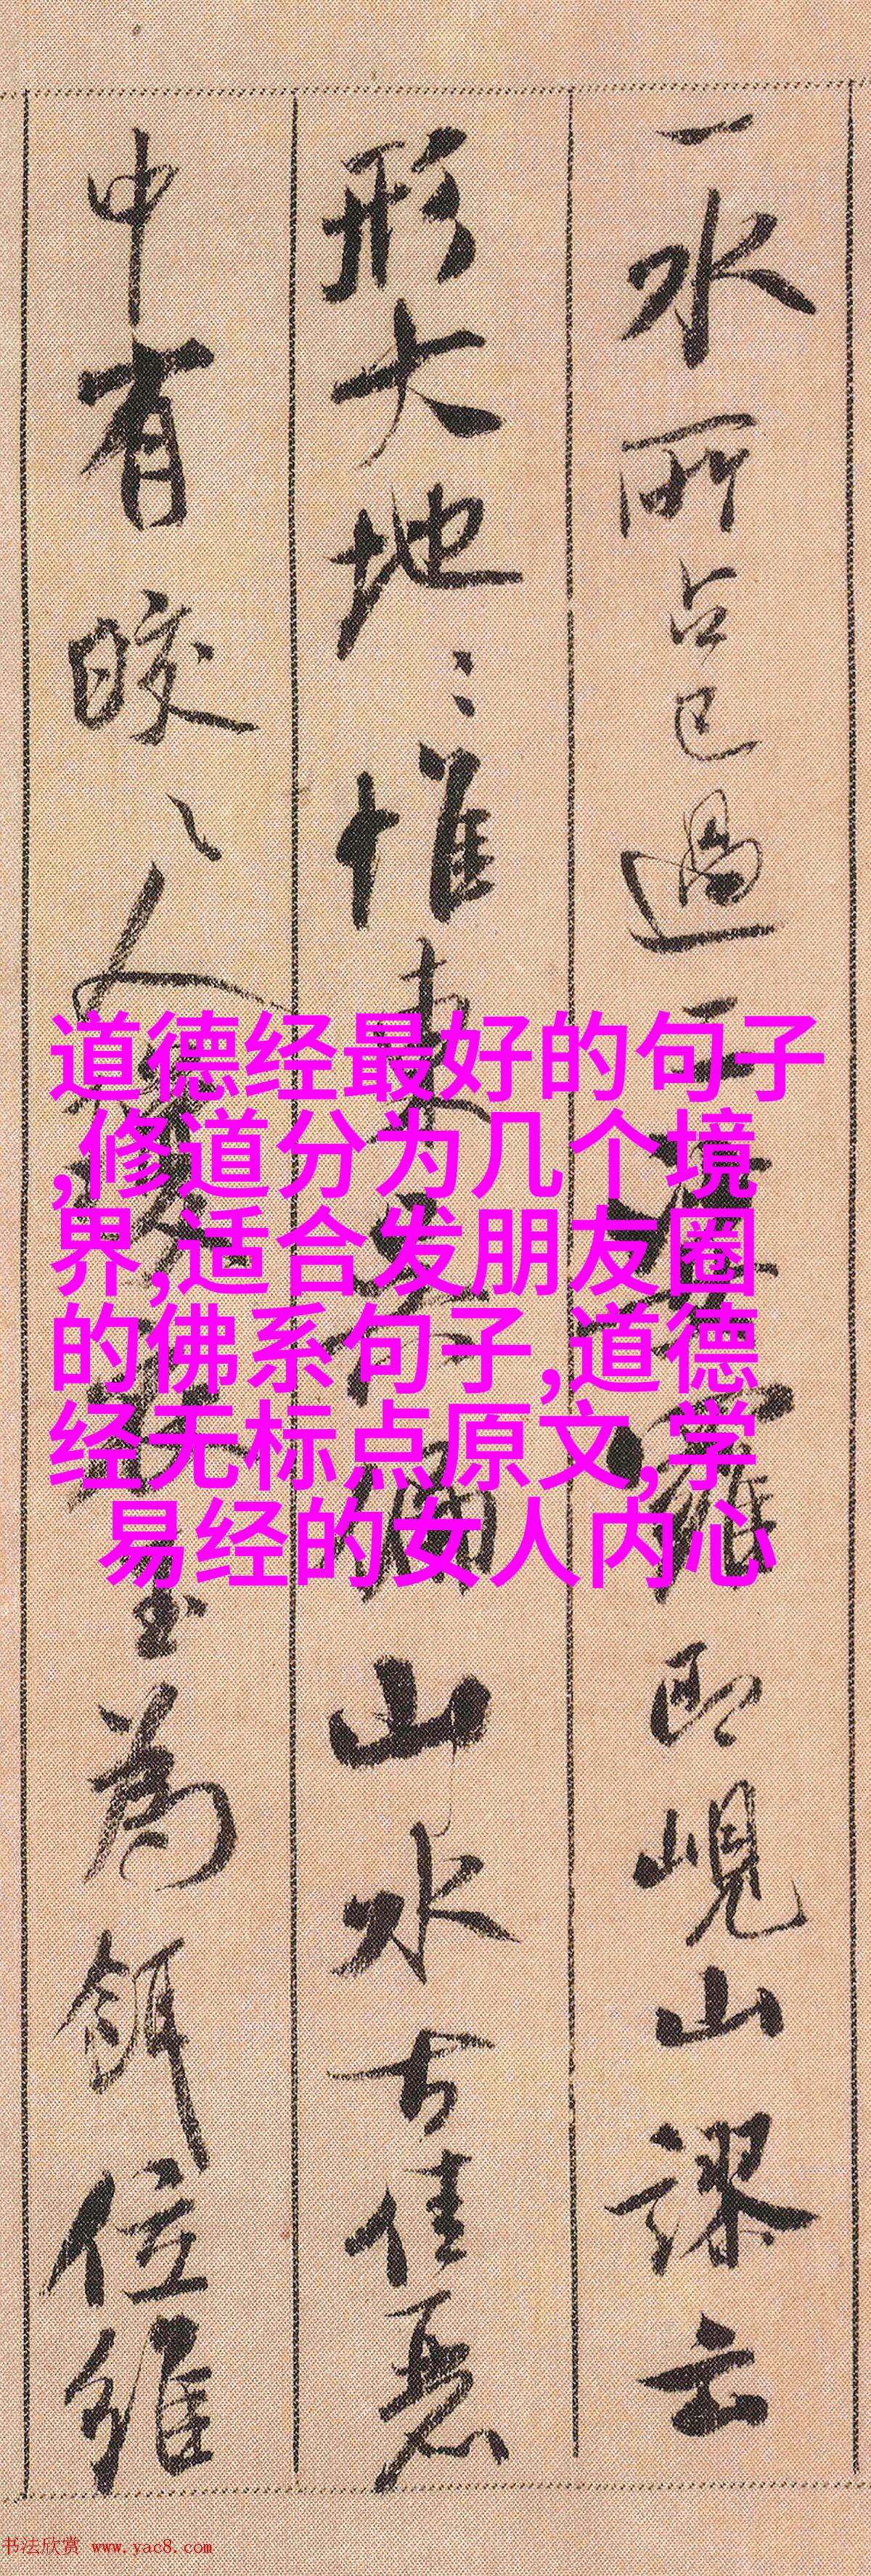 一水所占已過二
即峴山謬云
形大地〻惟東
山水古佳惡
中有皎〻人
玉為餌位維
道德经最好的句子
,修道分为几个境
界,适合发朋友圈
的佛系句子,道德
经无标点原文,学
易经的女人内心
书法欣赏 www.yac8.com